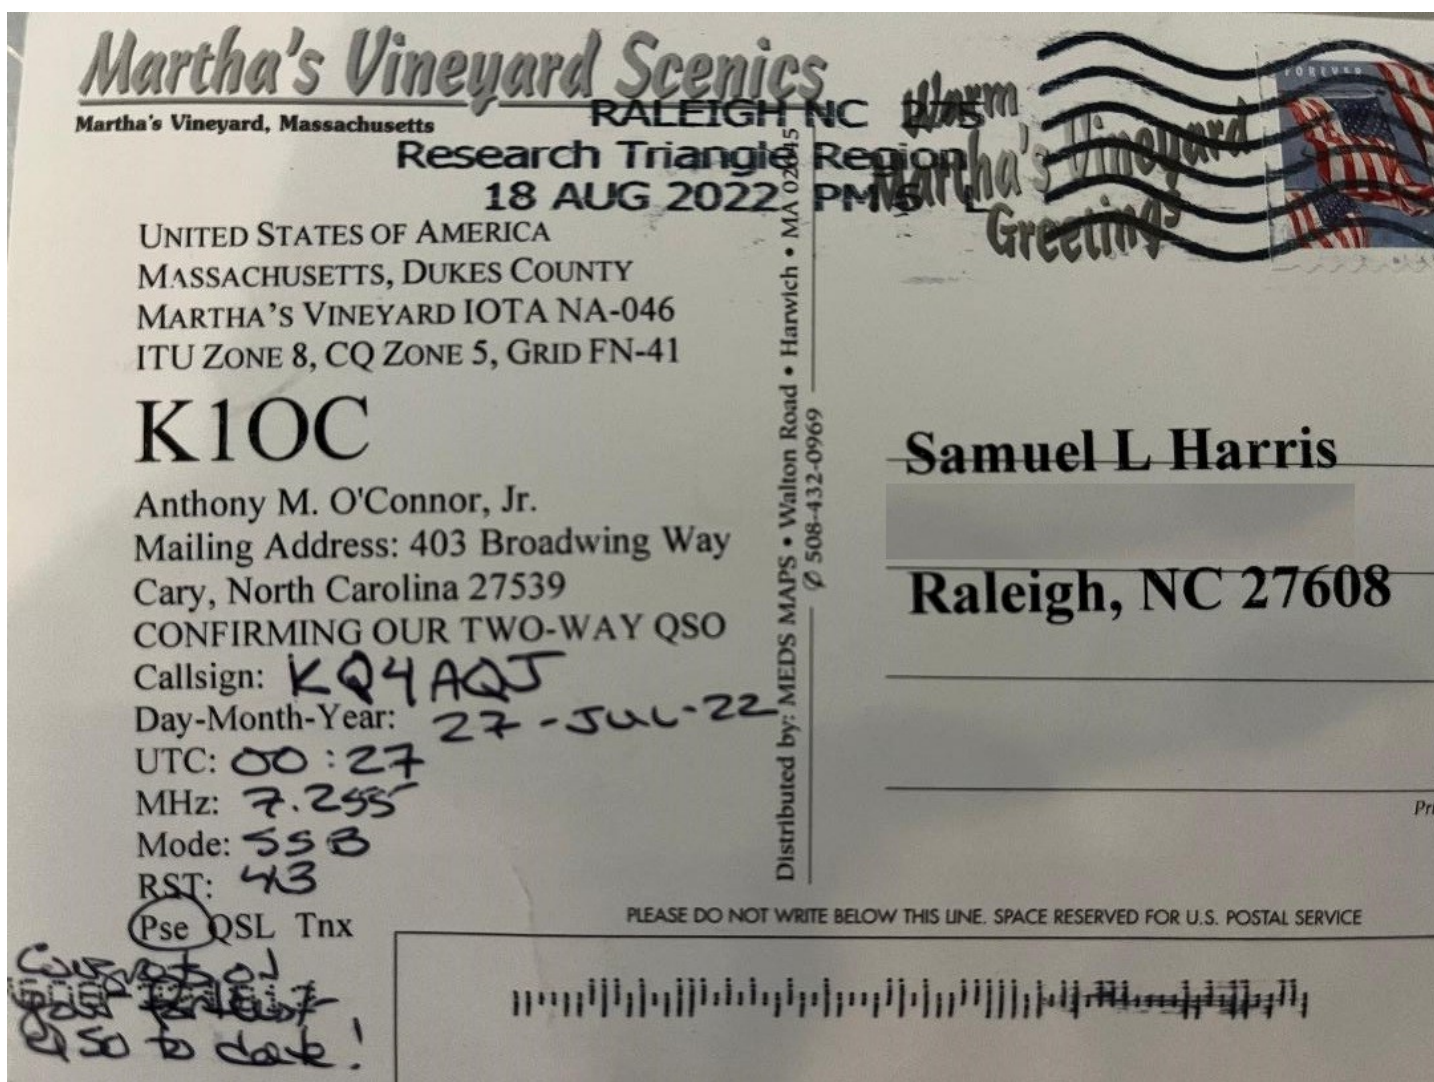 Martha's Vineyard Scenics
Martha's Vineyard, Massachusetts
RALEIGH NC 275
Research Triangle Region
18 AUG 2022 PM 6 L
Warm
Martha's Vineyard
Greetings
FOREVER
UNITED STATES OF AMERICA
MASSACHUSETTS, DUKES COUNTY
MARTHA'S VINEYARD IOTA NA-046
ITU ZONE 8, CQ ZONE 5, GRID FN-41
K1OC
Anthony M. O'Connor, Jr.
Mailing Address: 403 Broadwing Way
Cary, North Carolina 27539
CONFIRMING OUR TWO-WAY QSO
Callsign: KQ4AQJ
Day-Month-Year: 27-JUL-22
UTC: 00:27
MHz: 7.255
Mode: SSB
RST: 43
Pse QSL Tnx
Congrats on
your furthest
QSO to date!
Distributed by: MEDS MAPS • Walton Road • Harwich • MA 02645
508-432-0969
Samuel L Harris
Raleigh, NC 27608
PLEASE DO NOT WRITE BELOW THIS LINE. SPACE RESERVED FOR U.S. POSTAL SERVICE